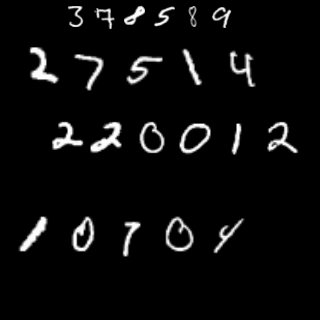 378589
27514
220012
10704